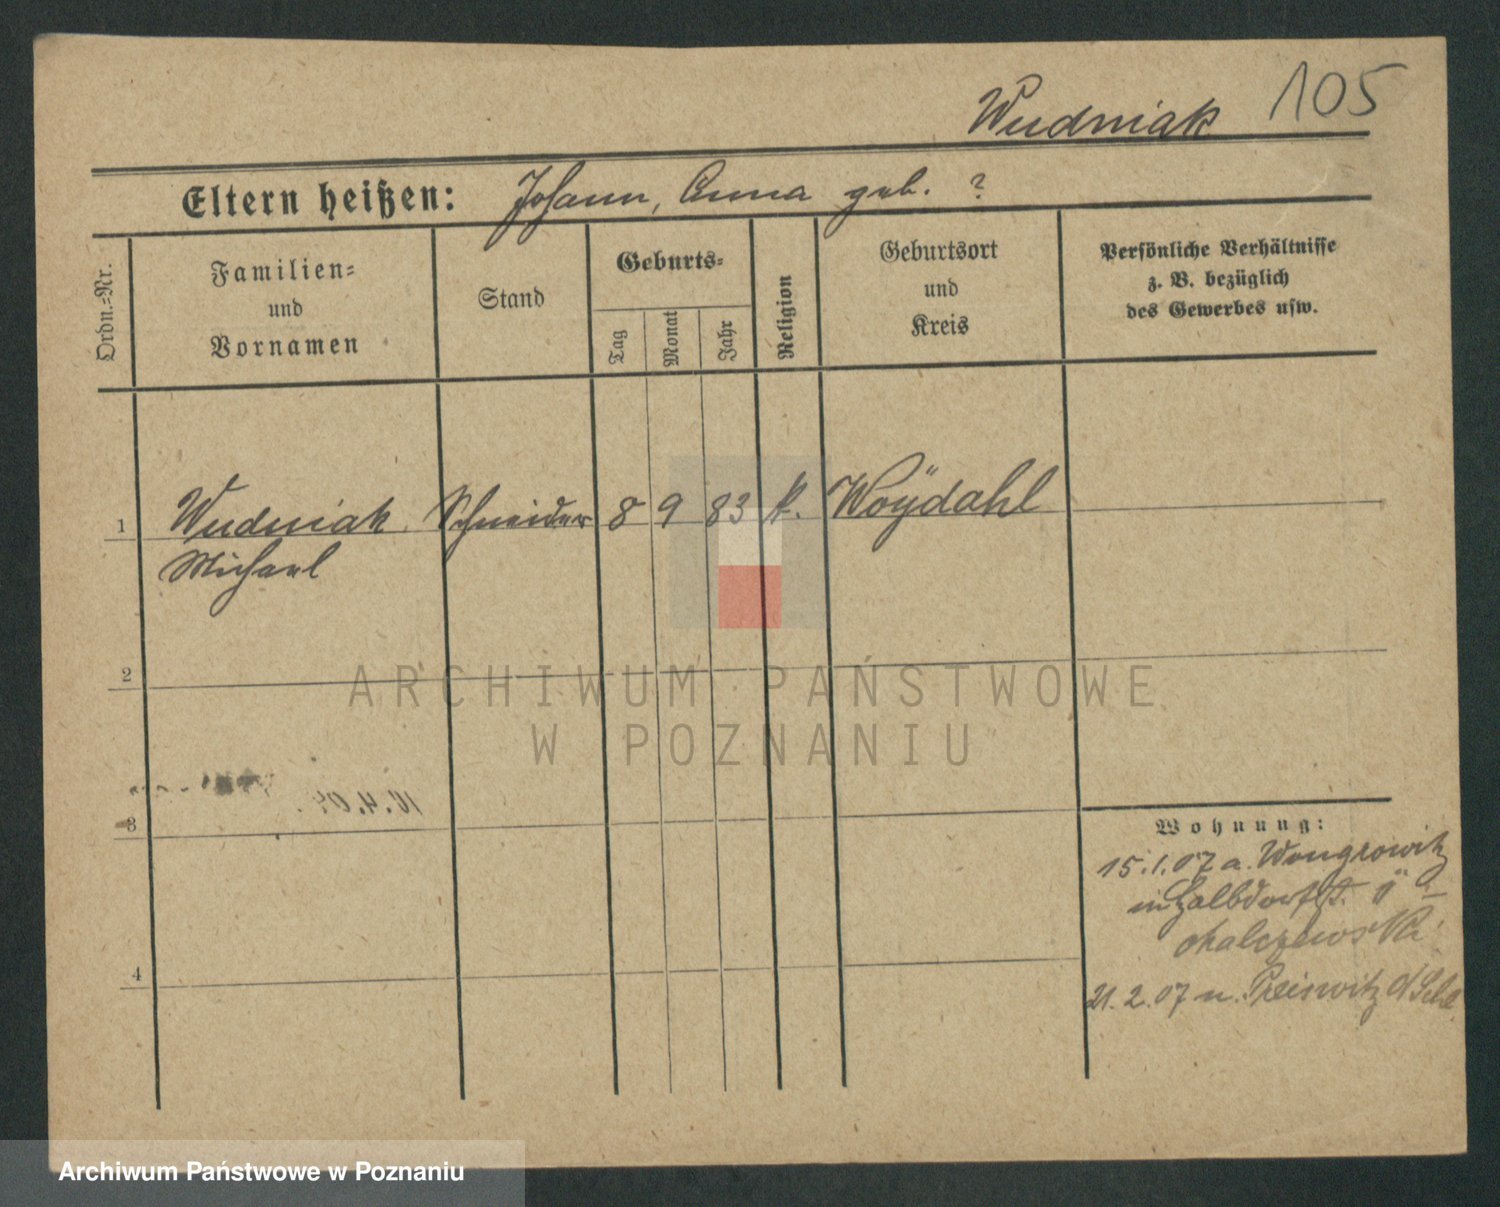 105
Wudniak
Eltern heißen: Johann, Anna geb. ?
Ordn.=Nr.
Familien=
und
Vornamen
Stand
Geburts=
Tag
Monat
Jahr
Religion
Geburtsort
und
Kreis
Persönliche Verhältnisse
z. B. bezüglich
des Gewerbes usw.
1 Wudniak Schneider 8 9 83 k. Woÿdahl
Michael
2
3
4
Wohnung:
15.1.07 a. Wongrowitz
in Halbdorfst.
21.2.07 n. Preiswitz
ARCHIWUM PAŃSTWOWE
W POZNANIU
Archiwum Państwowe w Poznaniu